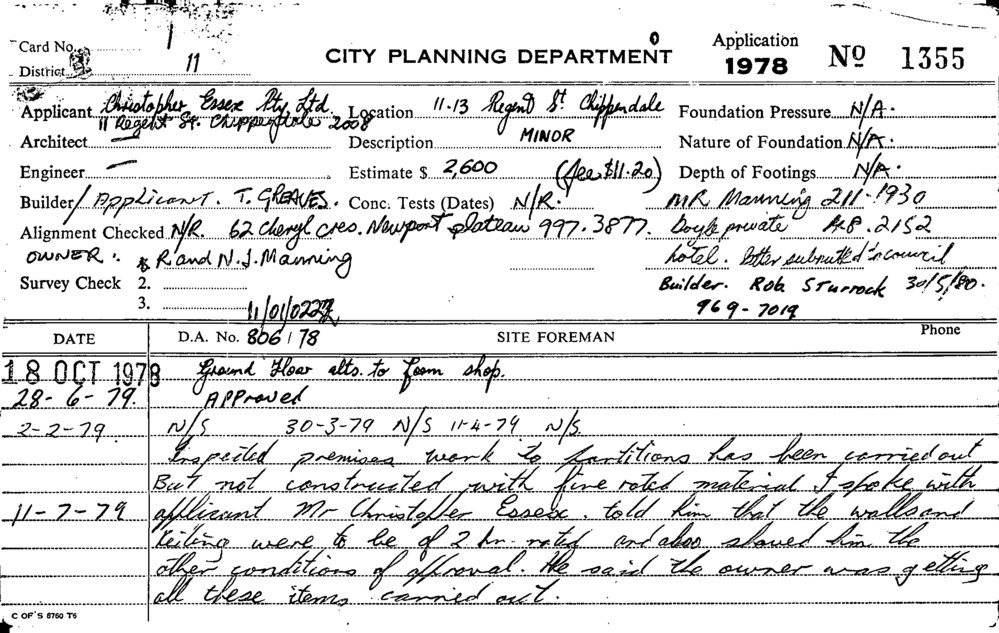 Card No. 1
District 11
CITY PLANNING DEPARTMENT
Application
1978 No 1355
Applicant Christopher Essex Pty. Ltd. Location 11-13 Regent St. Chippendale Foundation Pressure N/A.
11 Regent St. Chippendale 2008
Architect — Description MINOR Nature of Foundation N/A.
Engineer — Estimate $ 2,600 (fee $11.20) Depth of Footings N/A.
Builder / Applicant. T. GREAVES. Conc. Tests (Dates) N/R. MR Manning 211.1930
Alignment Checked N/R. 62 Cheryl Cres. Newport plateau 997.3877. Doyle private 48.2152
OWNER. R and N.J. Manning hotel. letter submitted council
Survey Check 2. Builder. Rob STurrock 30/5/80.
3. 11/01/0227 969-7019
DATE D.A. No. 806/78 SITE FOREMAN Phone
18 OCT 1978 Ground Floor alts. to foam shop.
28-6-79. APProved
2-2-79. N/S 30-3-79 N/S 11-4-79 N/S.
Inspected premises work to partitions has been carried out
But not constructed with fire rated material I spoke with
11-7-79 applicant Mr Christopher Essex. told him that the walls and
ceiling were to be of 2 hr. rated and also showed him the
other conditions of approval. He said the owner was getting
all these items carried out.
C OF'S 6760 T6